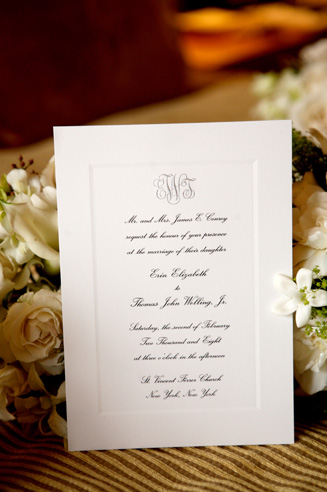 EWT
Mr. and Mrs. James E. Conroy
request the honour of your presence
at the marriage of their daughter
Erin Elizabeth
to
Thomas John Welling, Jr.
Saturday, the second of February
Two Thousand and Eight
at three o'clock in the afternoon
St. Vincent Ferrer Church
New York, New York